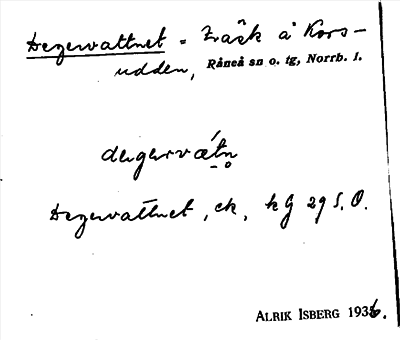 Degervattnet = Träsk å Kors-
udden, Råneå sn o. tg, Norrb. l.
degərvætn
Degervattnet, ek, kG 29 S.O.
ALRIK ISBERG 1936.